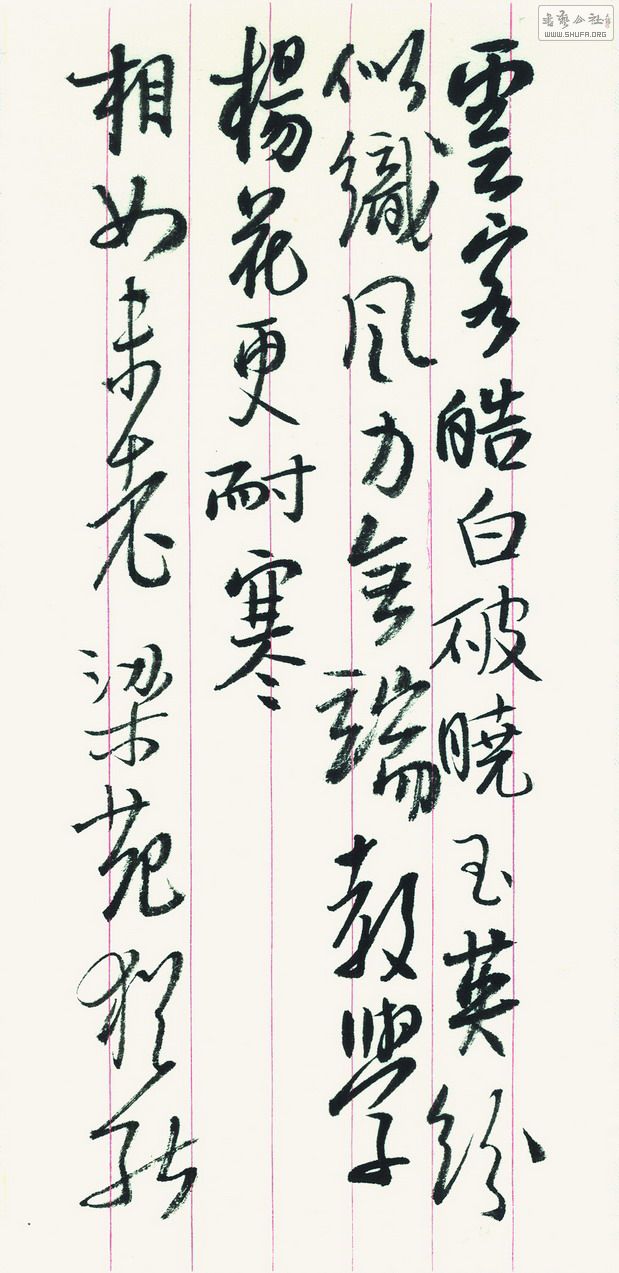 雲容皓白破曉玉英紛
似織風力無端教學
楊花更耐寒
相如未老梁苑猶能
書藝公社
WWW.SHUFA.ORG